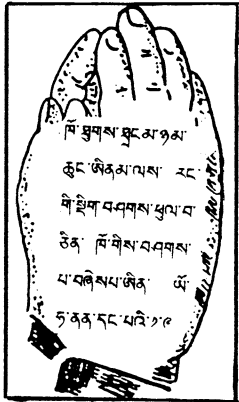 ཁོ་ཐུགས་ཐྲང་མ་ཉམ་
ཆུང་ཨིནམ་ལས་ རང་
གི་སྡིག་བཤགས་ཕུལ་བ་
ཅིན་ ཁོ་གིས་བཤགས་
པ་བཞེསཔ་ཨིན་ ཡོ་
ཧ་ནན་དང་པའི་༡་༩